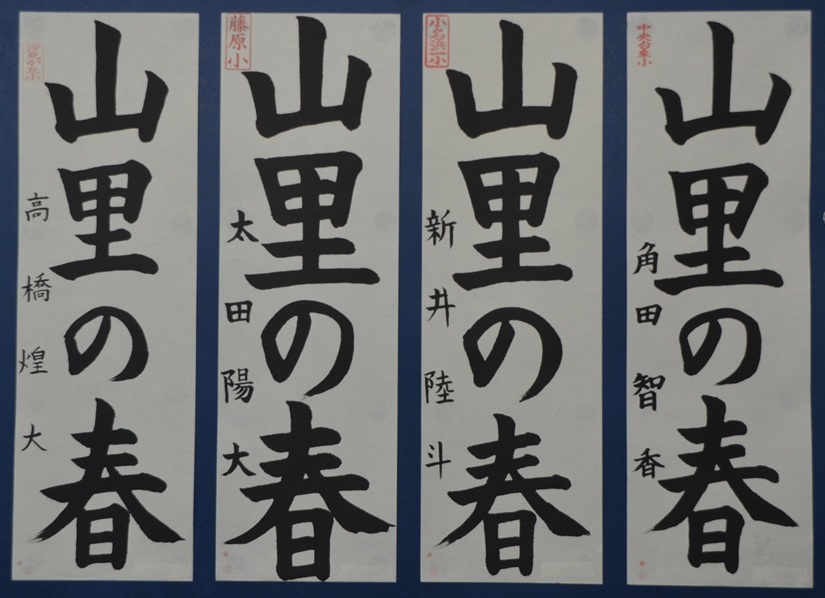 山里の春
中央台東小
角田智香
山里の春
小名浜一小
新井陸斗
山里の春
藤原小
太田陽大
山里の春
汐見が丘小
高橋煌大